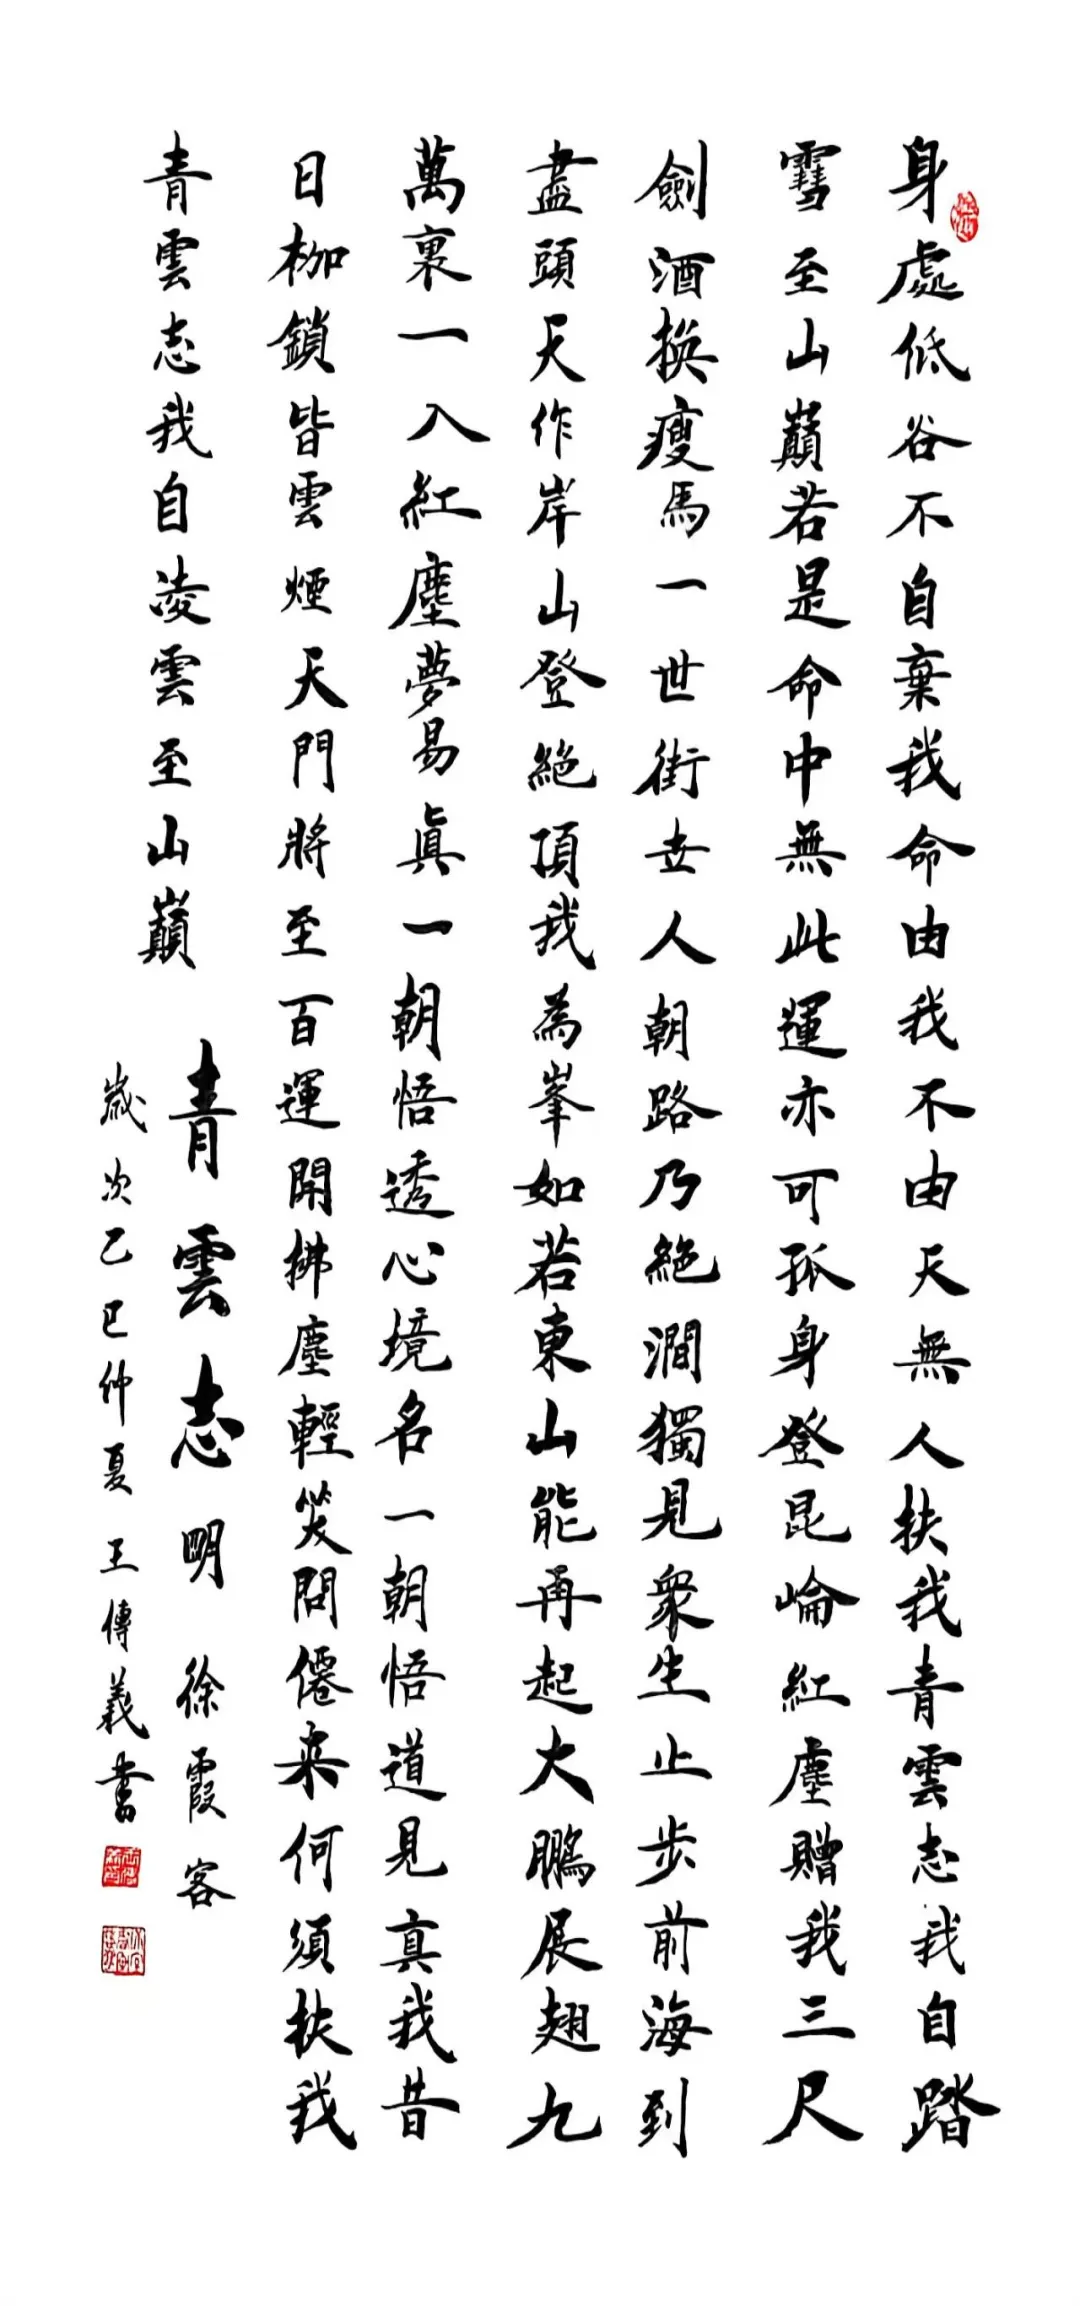 身處低谷不自棄我命由我不由天無人扶我青雲志我自踏
雪至山巔若是命中無此運亦可孤身登昆崙紅塵贈我三尺
劍酒換瘦馬一世街世人朝路乃絕澗獨見衆生止步前海到
盡頭天作岸山登絕頂我為峯如若東山能再起大鵬展翅九
萬裏一入紅塵夢易眞一朝悟透心境名一朝悟道見真我昔
日枷鎖皆雲煙天門將至百運開拂塵輕笑問僊來何須扶我
青雲志我自凌雲至山巔
青雲志 明 徐霞客
歲次乙巳仲夏王傳義書